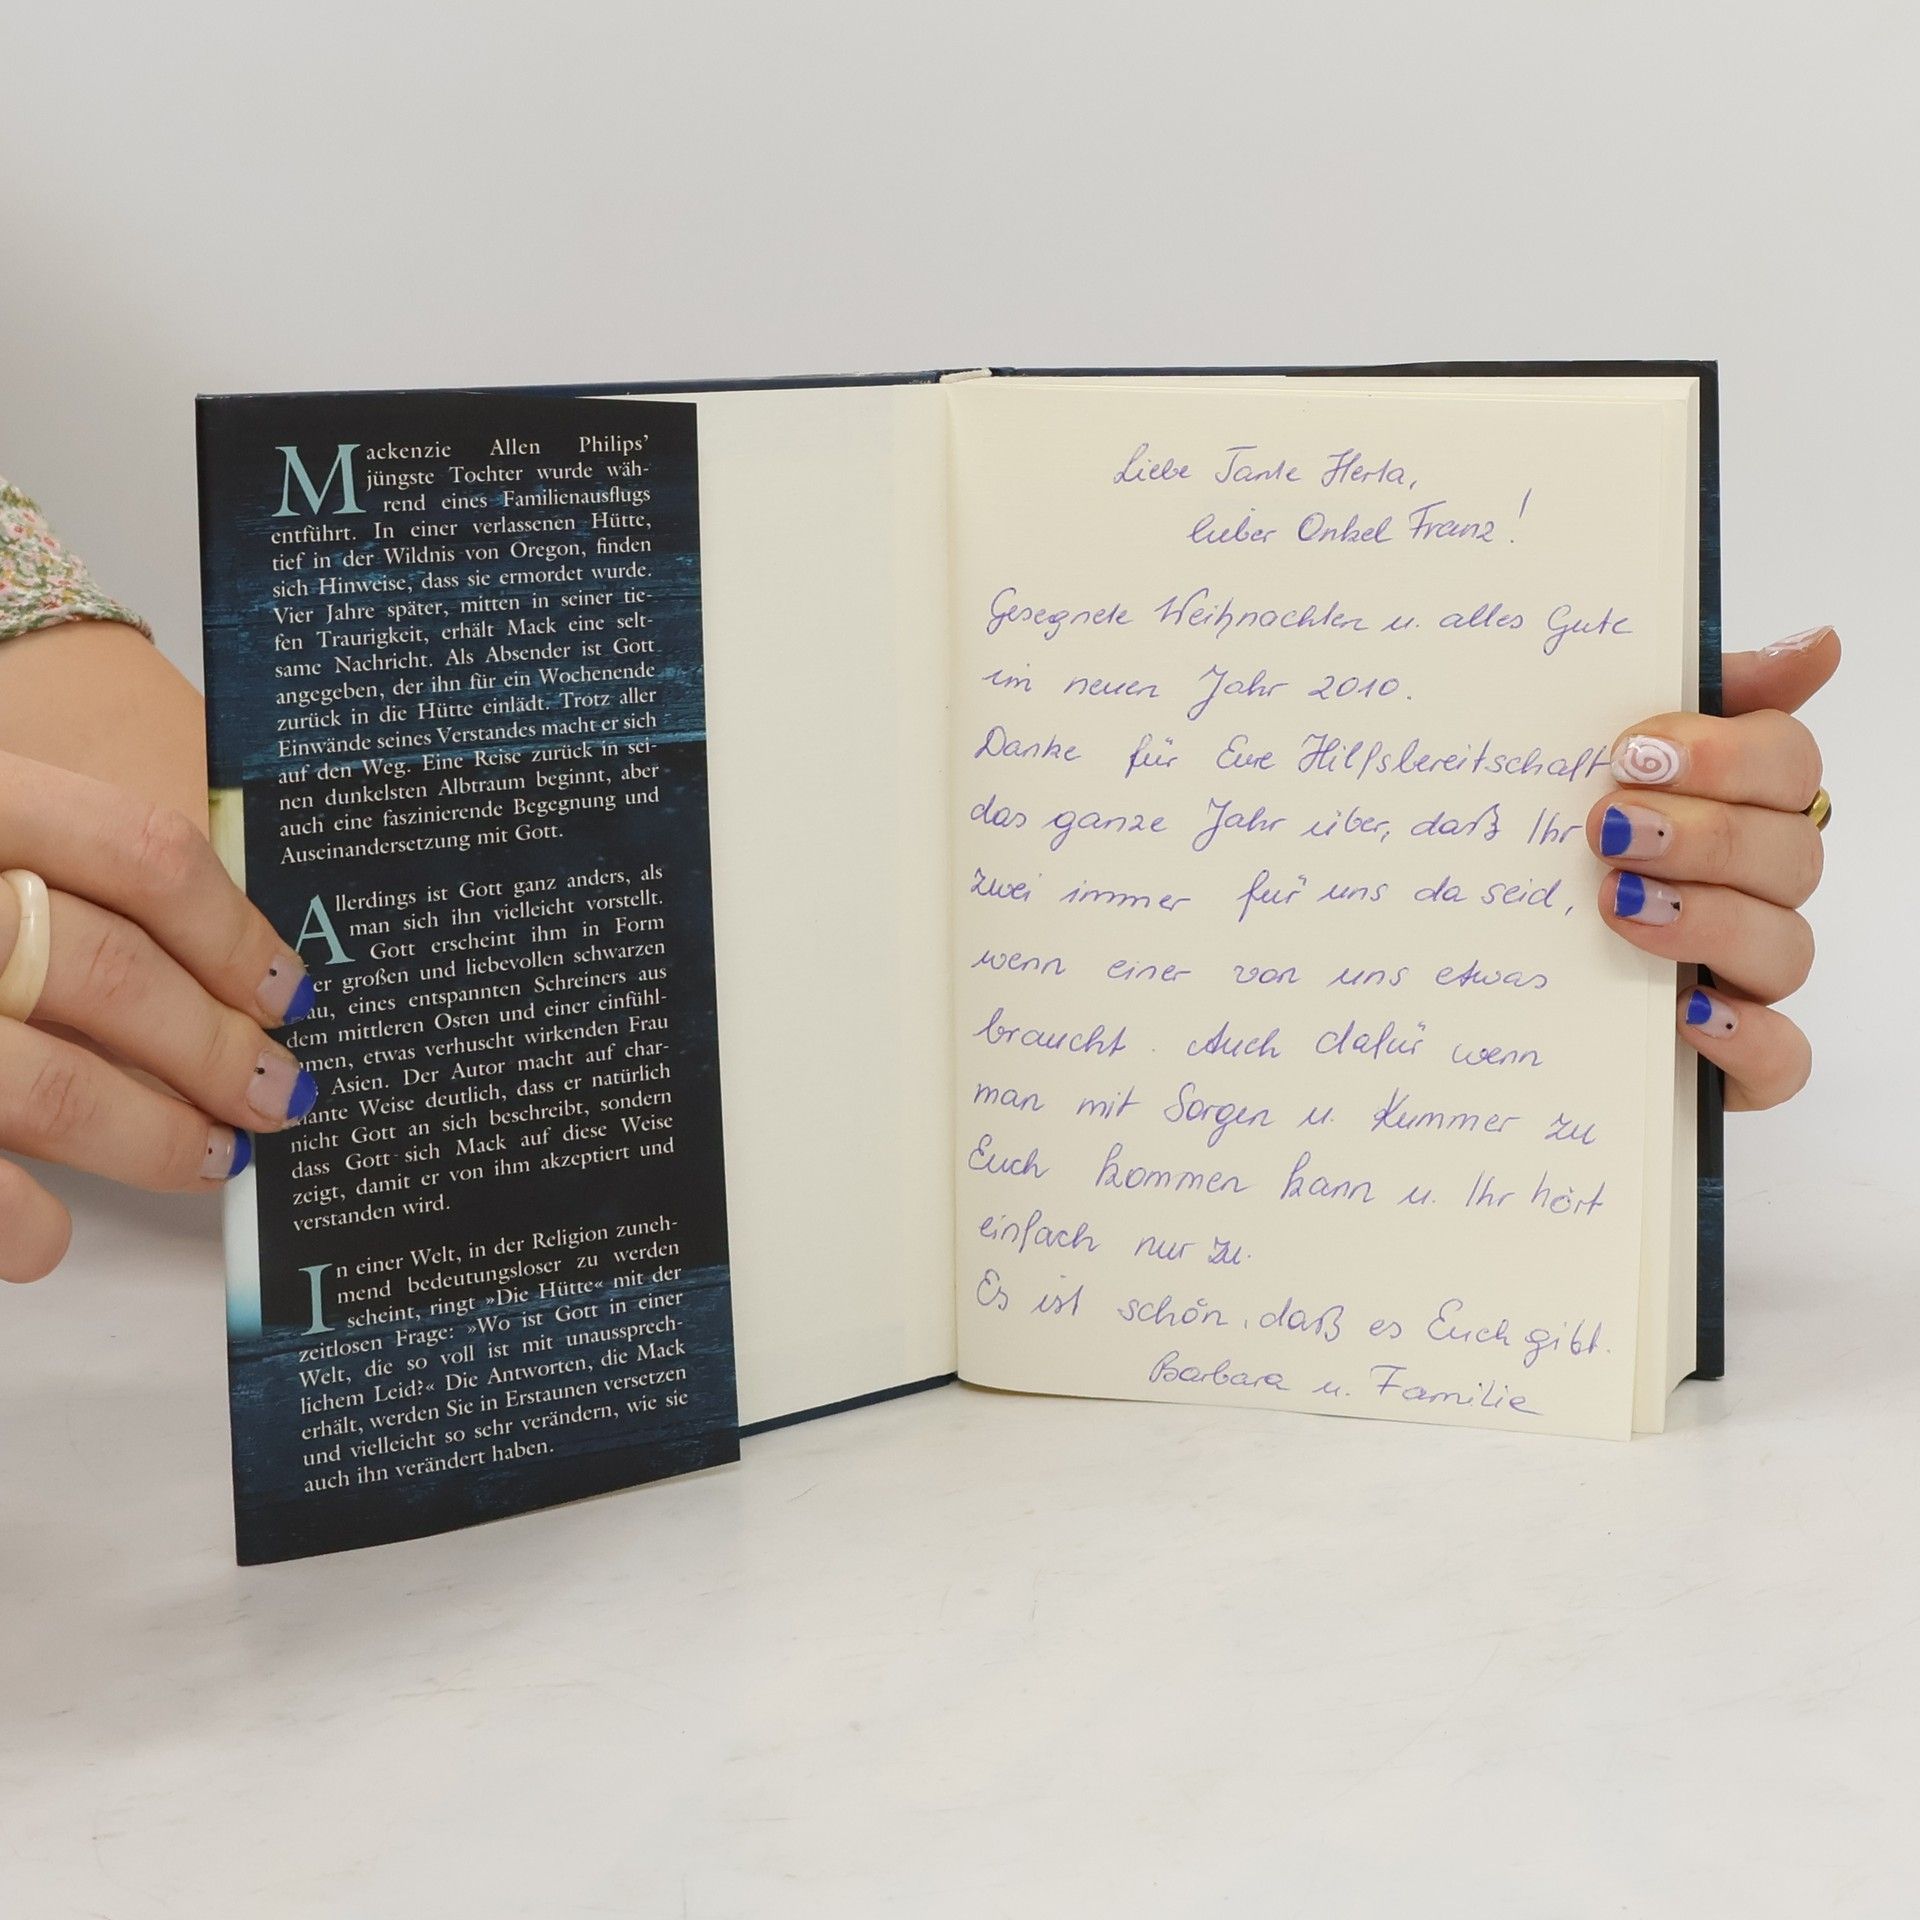 Mackenzie Allen Philips'
jüngste Tochter wurde wäh-
rend eines Familienausflugs
entführt. In einer verlassenen Hütte,
tief in der Wildnis von Oregon, finden
sich Hinweise, dass sie ermordet wurde.
Vier Jahre später, mitten in seiner tie-
fen Traurigkeit, erhält Mack eine selt-
same Nachricht. Als Absender ist Gott
angegeben, der ihn für ein Wochenende
zurück in die Hütte einlädt. Trotz aller
Einwände seines Verstandes macht er sich
auf den Weg. Eine Reise zurück in sei-
nen dunkelsten Albtraum beginnt, aber
auch eine faszinierende Begegnung und
Auseinandersetzung mit Gott.
Allerdings ist Gott ganz anders, als
man sich ihn vielleicht vorstellt.
Gott erscheint ihm in Form
er großen und liebevollen schwarzen
au, eines entspannten Schreiners aus
dem mittleren Osten und einer einfühl-
men, etwas verhuscht wirkenden Frau
Asien. Der Autor macht auf char-
mante Weise deutlich, dass er natürlich
nicht Gott an sich beschreibt, sondern
dass Gott sich Mack auf diese Weise
zeigt, damit er von ihm akzeptiert und
verstanden wird.
In einer Welt, in der Religion zuneh-
mend bedeutungsloser zu werden
scheint, ringt »Die Hütte« mit der
zeitlosen Frage: »Wo ist Gott in einer
Welt, die so voll ist mit unaussprech-
lichem Leid?« Die Antworten, die Mack
erhält, werden Sie in Erstaunen versetzen
und vielleicht so sehr verändern, wie sie
auch ihn verändert haben.
Liebe Tante Herta,
lieber Onkel Franz!
Gesegnete Weihnachten u. alles Gute
im neuen Jahr 2010.
Danke für Eure Hilfsbereitschaft
das ganze Jahr über, daß Ihr
zwei immer für uns da seid,
wenn einer von uns etwas
braucht. Auch dafür wenn
man mit Sorgen u. Kummer zu
Euch kommen kann u. Ihr hört
einfach nur zu.
Es ist schön, daß es Euch gibt.
Barbara u. Familie